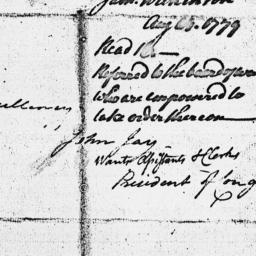 Aug 23. 1779
Read
Referred to the board of war
who are empowered to
take order thereon
John Jay
wants Assistants & Clerks
President of Cong